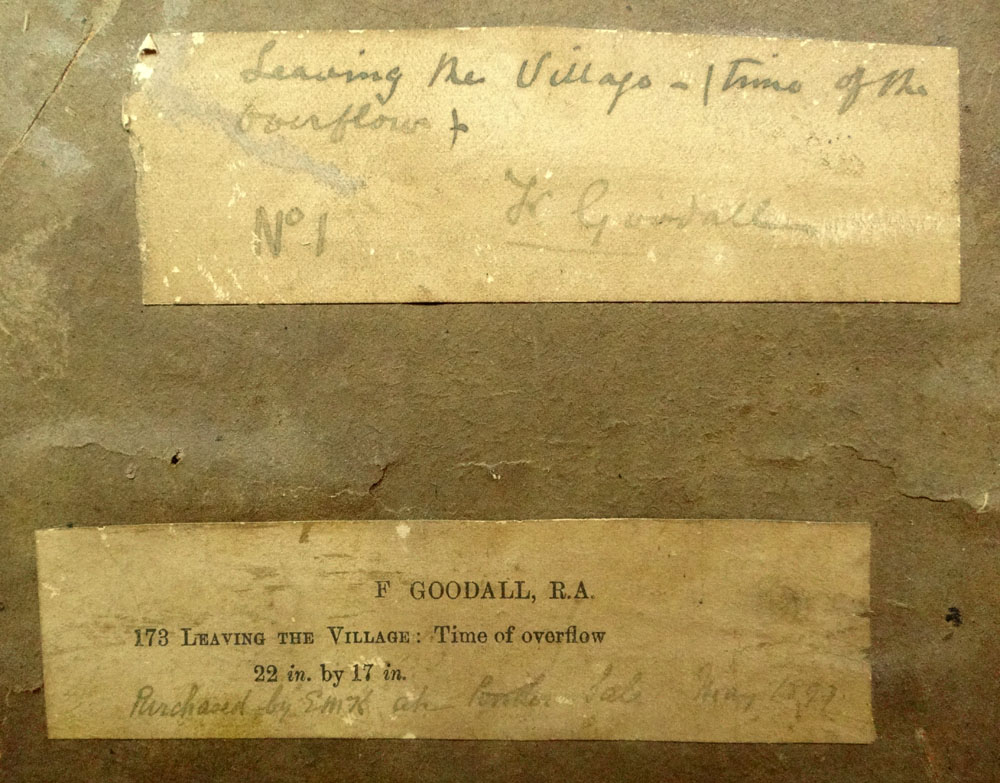 Leaving the Village - (Time of the
overflow)
Goodall
No 1
F GOODALL, R.A.
173 LEAVING THE VILLAGE: Time of overflow
22 in. by 17 in.
Purchased by at Sale